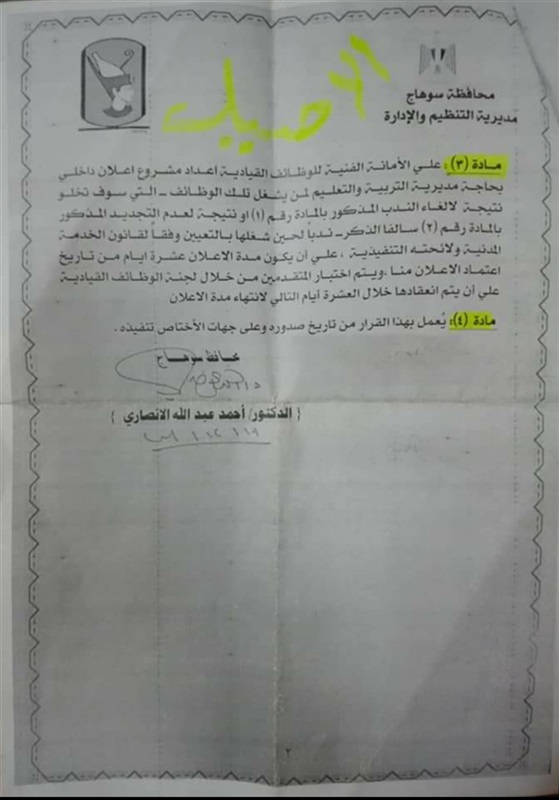 محافظة سوهاج
مديرية التنظيم والإدارة
مادة (٣): علي الأمانة الفنية للوظائف القيادية اعداد مشروع اعلان داخلي
بحاجة مديرية التربية والتعليم لمن يشغل تلك الوظائف – التي سوف تخلو
نتيجة لالغاء الندب المذكور بالمادة رقم (١) او نتيجة لعدم التجديد المذكور
بالمادة رقم (٢) سالفا الذكر– ندباً لحين شغلها بالتعيين وفقاً لقانون الخدمة
المدنية ولائحته التنفيذية ، علي أن يكون مدة الاعلان عشرة ايام من تاريخ
اعتماد الاعلان منا، ويتم اختبار المتقدمين من خلال لجنة الوظائف القيادية
علي أن يتم انعقادها خلال العشرة أيام التالي لانتهاء مدة الاعلان
مادة (٤): يُعمل بهذا القرار من تاريخ صدوره وعلى جهات الأختاص تنفيذه.
محافظ سوهاج
{ الدكتور/ أحمد عبد الله الانصاري }
٢